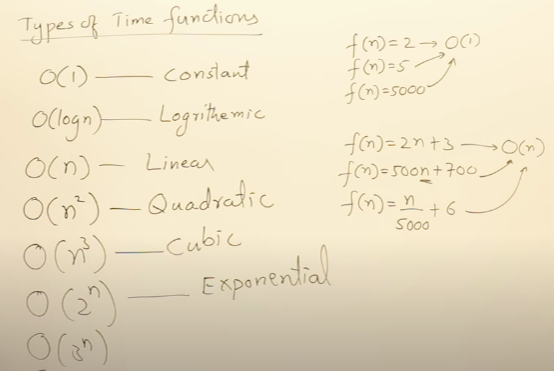 Types of Time functions
O(1) — Constant
O(logn) — Logrithemic
O(n) — Linear
O(n²) — Quadratic
O(n³) — Cubic
O(2ⁿ) — Exponential
O(3ⁿ)
f(n)=2 → O(1)
f(n)=5
f(n)=5000
f(n)=2n+3 → O(n)
f(n)=500n+700
f(n)=n/5000+6